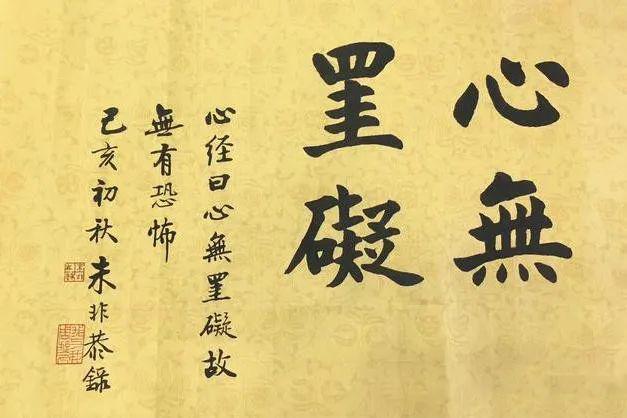 心無
罣礙
心经曰心無罣礙故
無有恐怖
己亥初秋未非恭錄